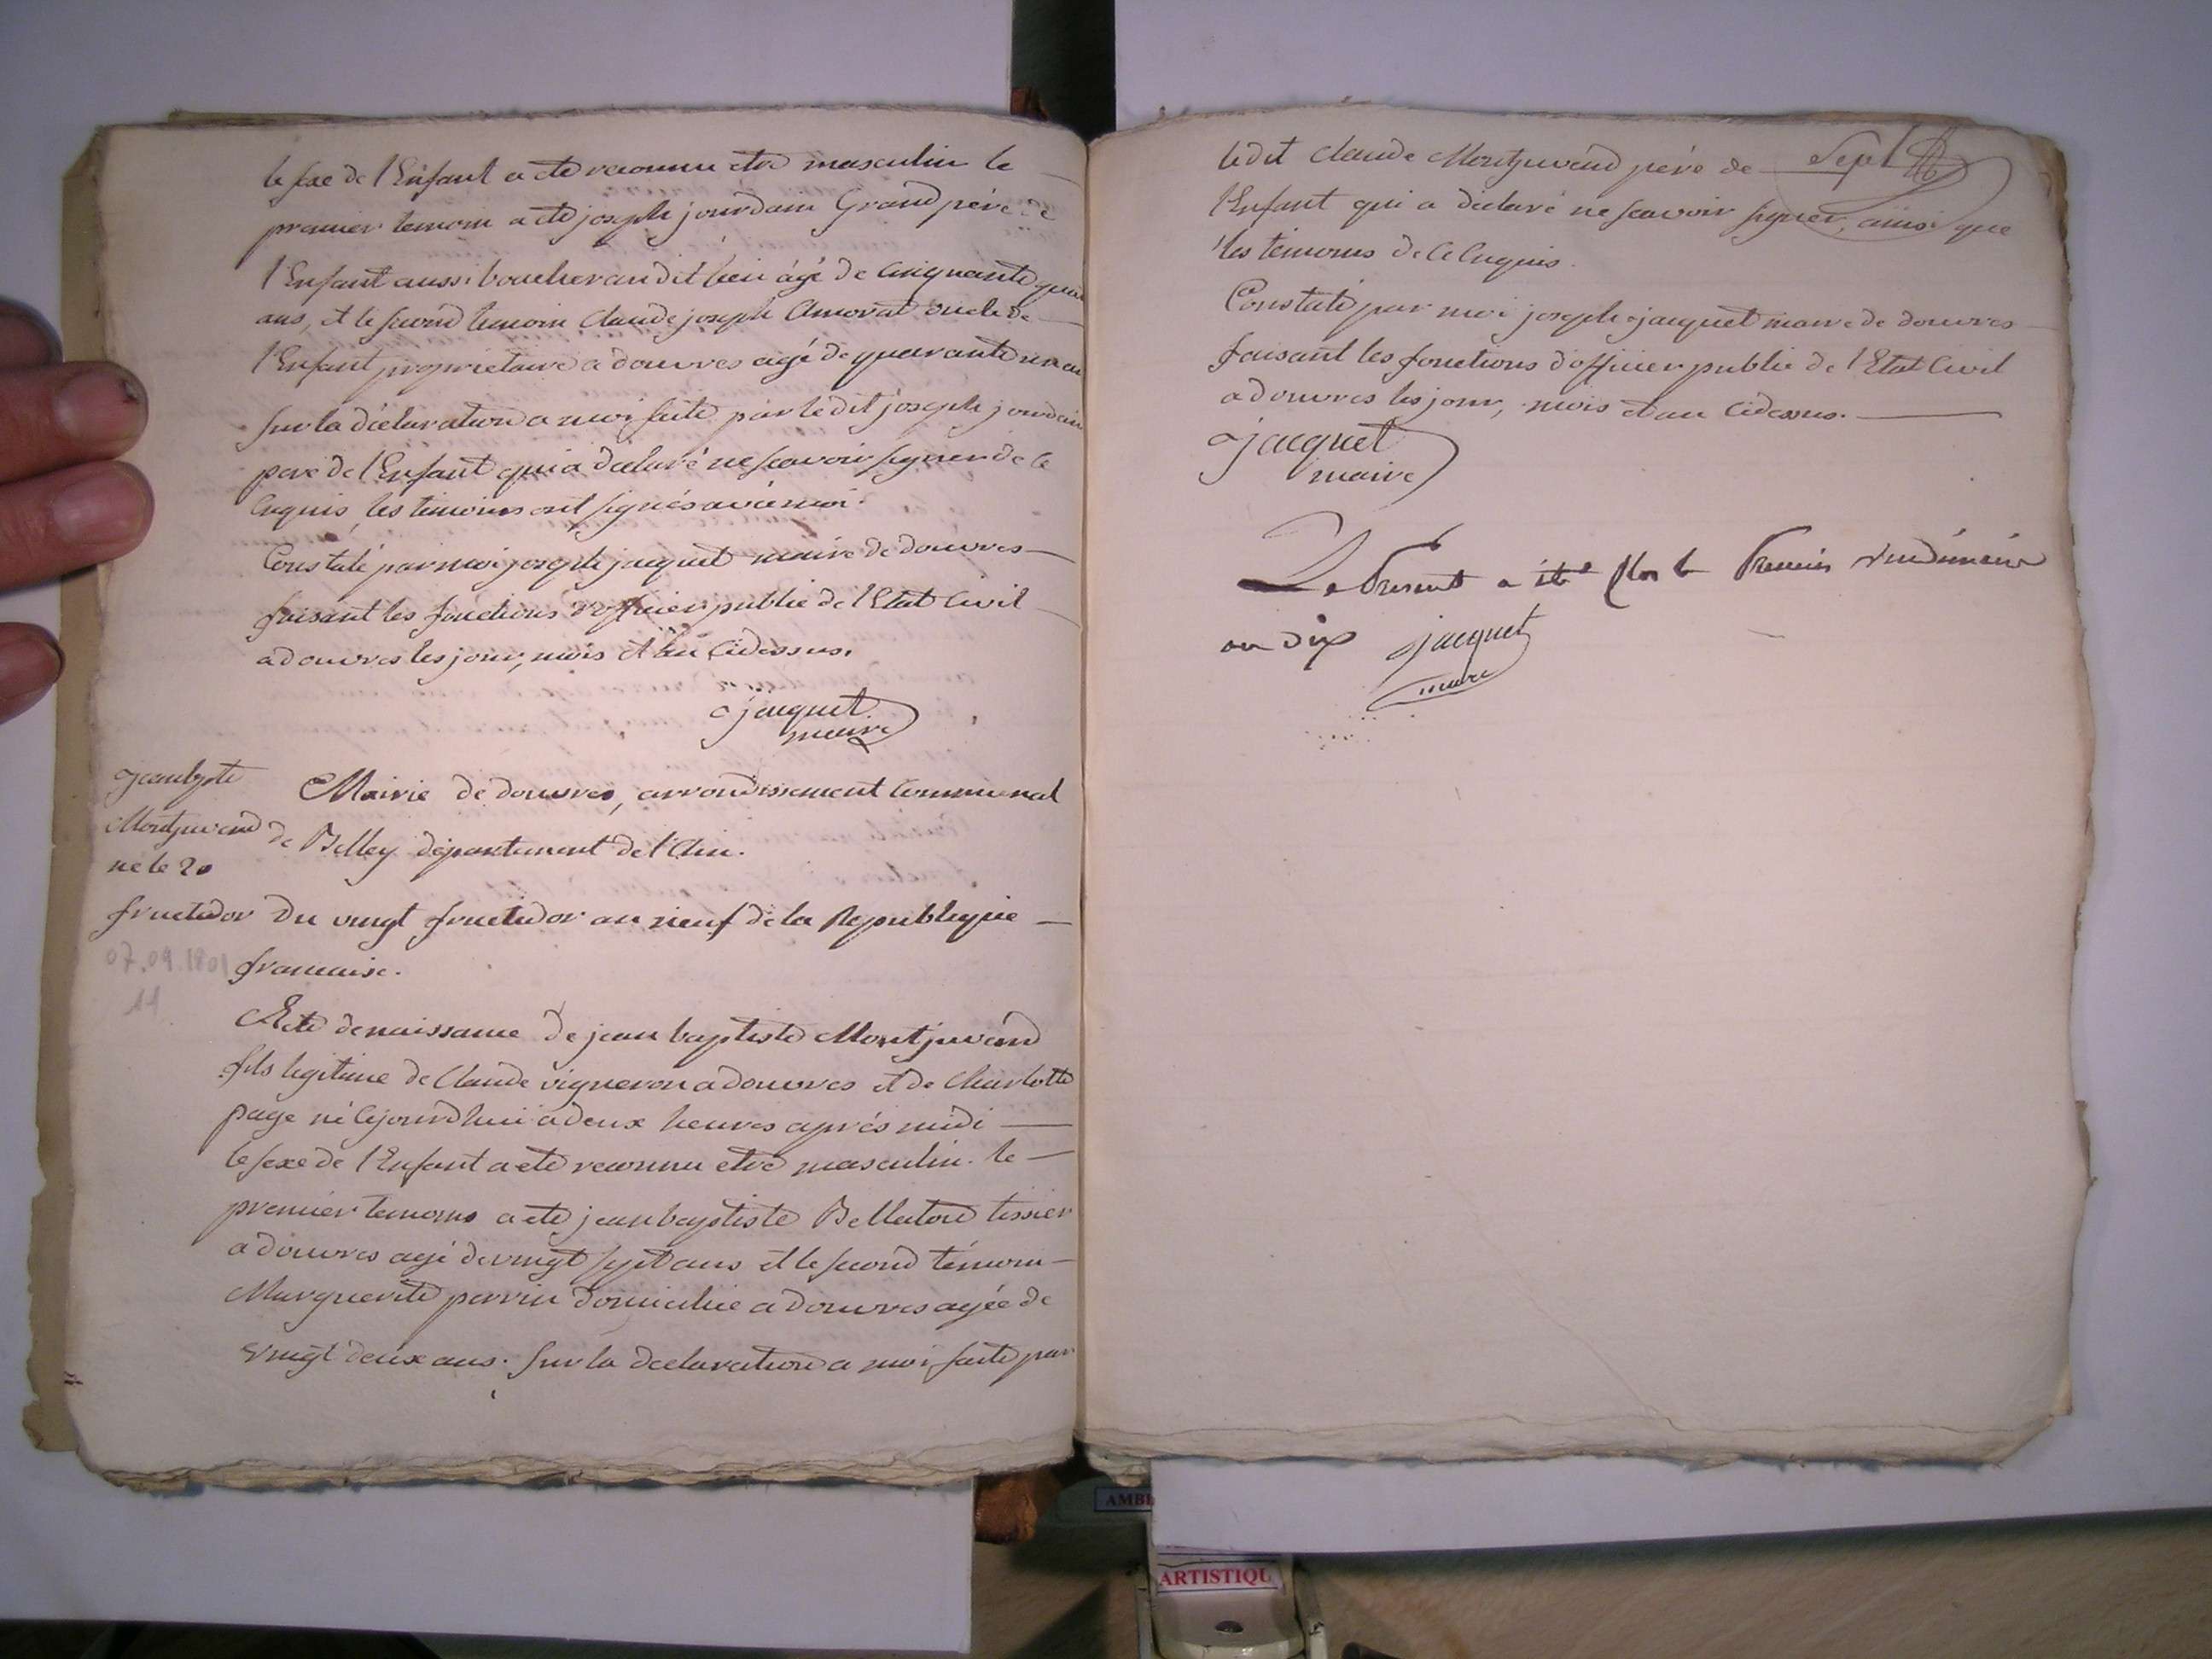 le sexe de l'Enfant a ete reconnu etre masculin le
premier temoin a ete joseph jourdain Grand pére de
l'Enfant aussi boucher audit lieu âgé de Cinquante
ans, et le second temoin Claude joseph Amorat oncle de
l'Enfant propriétaire a douvres agé de quarante un an
sur la déclaration a moi faite par ledit joseph jourdain
pere de l'Enfant qui a declaré ne scavoir signer de ce
Enquis, les temoins ont signés avec moi.
Constaté par moi joseph jacquet maire de douvres
faisant les fonctions d'officier public de l'Etat Civil
a douvres les jour, mois et an Cidessus.
jacquet
maire
jean bpte
Montjuvend
né le 20
fructidor
07.09.1801
11
Mairie de douvres, arrondissement Communal
de Belley département de l'Ain.
Du vingt fructidor an neuf de la Republique
francaise.
Acte de naissance de jean baptiste Montjuvend
fils legitime de Claude vigneron a douvres et de Charlotte
page né Cejourdhui a deux heures aprés midi
le sexe de l'Enfant a ete reconnu etre masculin. le
premier temoins a ete jean baptiste Bellaton tissier
a douvres agé de vingt sept ans et le second témoin
Marguerite perrin domiciliée a douvres agée de
vingt deux ans. sur la declaration a moi faite par
ledit Claude Montjuvend pére de
Sept
l'Enfant qui a déclaré ne scavoir signer, ainsi que
les témoins de Ce Enquis.
Constaté par moi joseph jacquet maire de douvres
faisant les fonctions d'officier public de l'Etat Civil
a douvres les jour, mois et an Cidessus.
jacquet
maire
Le Present a été Clos le Premier vendémiaire
an dix jacquet
maire
AMBE
ARTISTIQU